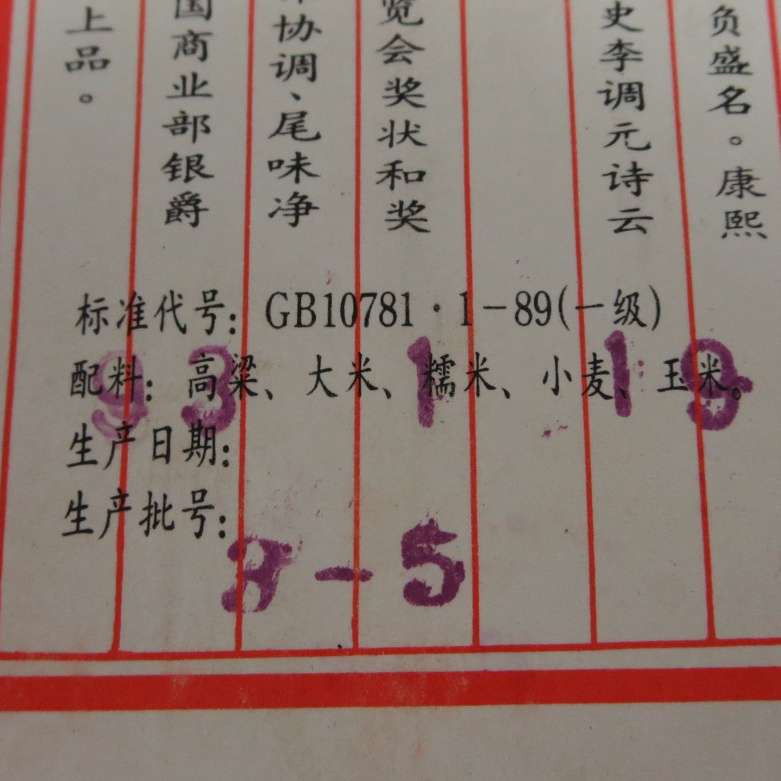 负盛名。康熙
史李调元诗云
览会奖状和奖
协调、尾味净
国商业部银爵
上品。
标准代号：GB10781·1-89(一级)
配料：高粱、大米、糯米、小麦、玉米。
93 1 19
生产日期：
生产批号：
3-5